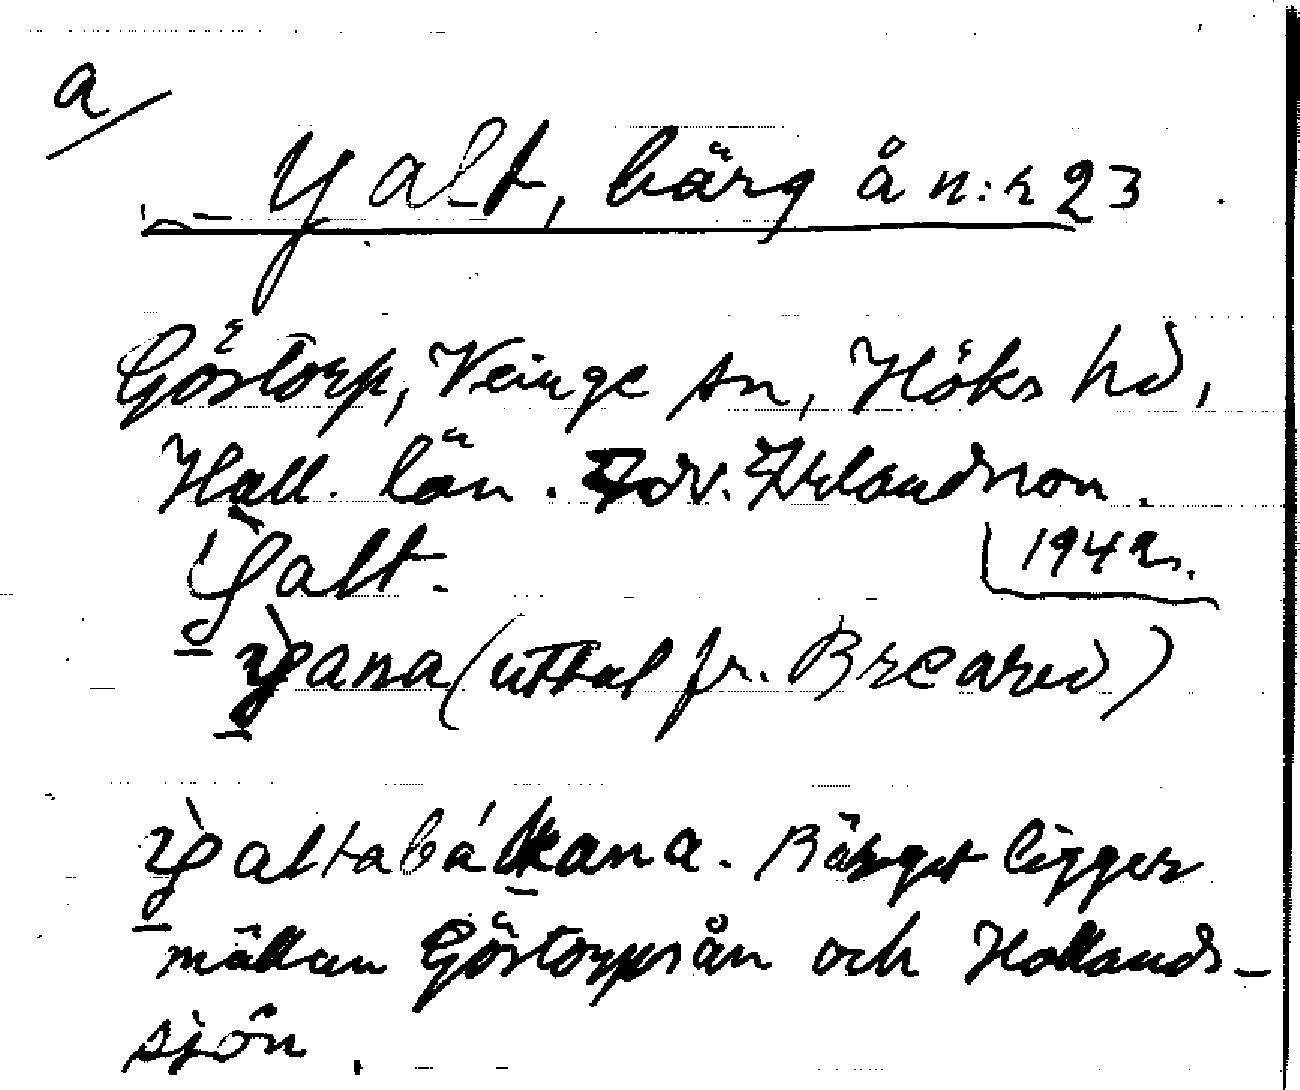 a/
Yalt, bärg å n:r 23
Göstorp, Veinge sn, Höks hd,
Hall. län. Edv. Erlandson.
Yalt. 1942.
Yana (uttal fr. Breared)
Yaltabákkana. Bärget ligger
mällan Göstorpsån och Hollands-
sjön.